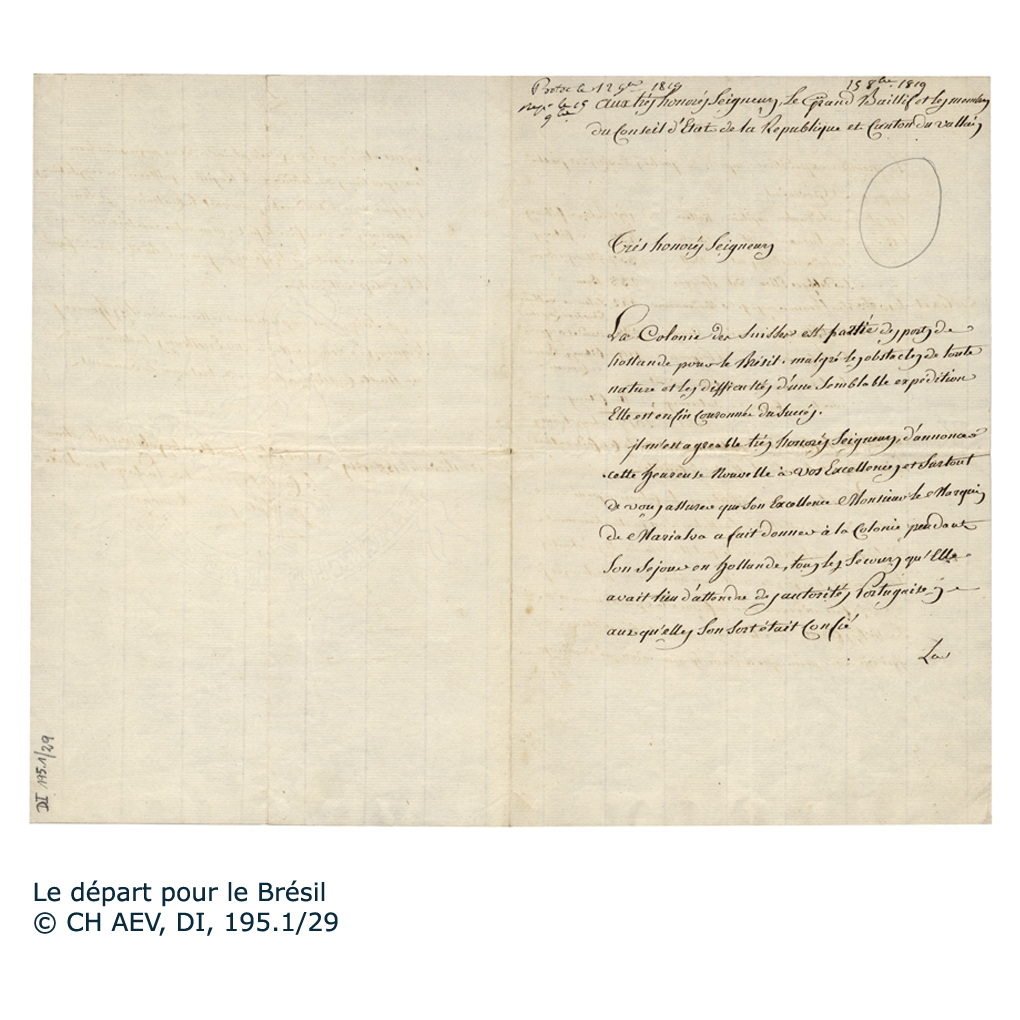 Protoc le 12 9bre 1819
15 8bre 1819
le 15
9bre
aux très honorés Seigneurs, Le Grand Baillif et les membres
du Conseil d'Etat de la Republique et Canton du vallais
Très honorés Seigneurs
La Colonie der Suisses est partie des ports de
hollande pour le Brésil. malgré les obstacles de toute
nature et les difficultés d'une Semblable expédition
Elle est enfin Couronnée du Succès.
il m'est agreable très honorés Seigneurs, d'annoncer
cette heureuse Nouvelle à Vos Excellences et Surtout
de vous assurer que Son Excellence Monsieur le Marquis
de Marialva a fait donner à la Colonie pendant
Son Sejour en hollande, tous les Secours qu'Elle
avait lieu d'attendre des autorités Portugaises
aux qu'elles Son Sort était Confié
La
DI 195.1/29
Le départ pour le Brésil
© CH AEV, DI, 195.1/29